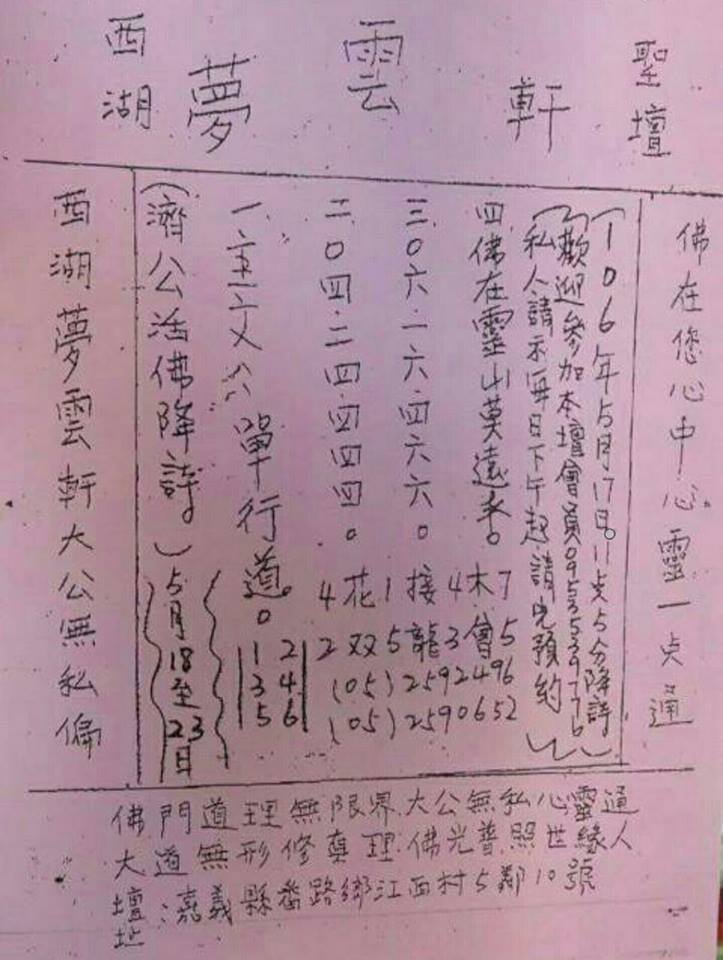 西湖 夢雲軒 聖壇
西湖夢雲軒大公無私偏
(濟公活佛降詩)
5月18至23日
單行道。
1 2
3 4
5 6
二0四.二四.四四四。
三0六.一六.四六六。
四佛在靈山莫遠求。
4花1接4木7
2双5龍3會5
(05)2592496
(05)2590652
私人請示每日下午起請先預約
歡迎參加本壇會員0953539776
(106年5月17日11点5分降詩)
佛在您心中心靈一点通
佛門道理無限界.大公無私心靈通
大道無形修真理.佛光普照世緣人
壇址:嘉義縣番路鄉江西村5鄰10號